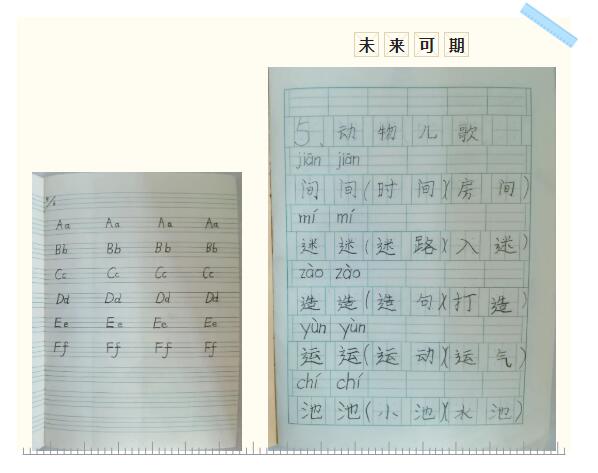 未来可期
Aa Aa Aa Aa
Bb Bb Bb Bb
Cc Cc Cc Cc
Dd Dd Dd Dd
Ee Ee Ee Ee
Ff Ff Ff Ff
5、动物儿歌
jiān jiān
间间(时间)(房间)
mí mí
迷迷(迷路)(入迷)
zào zào
造造(造句)(打造)
yùn yùn
运运(运动)(运气)
chí chí
池池(小池)(水池)